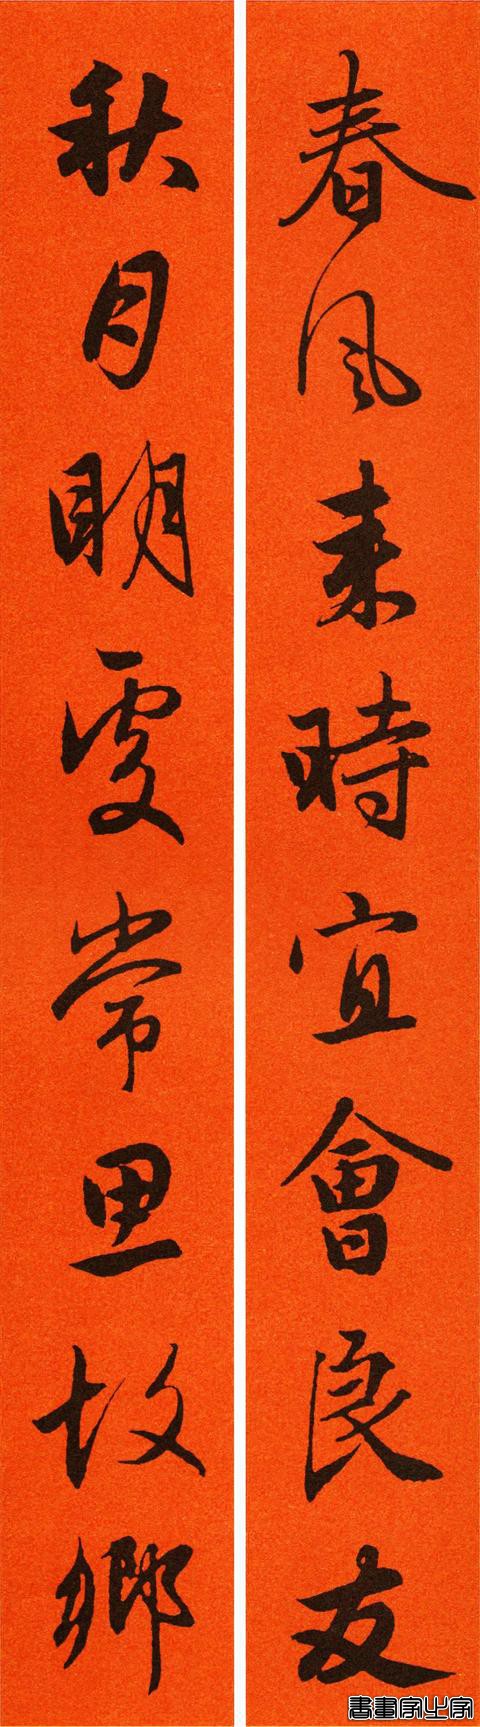 春風来時宜會良友
秋月明處常思故鄉
書畫字中字